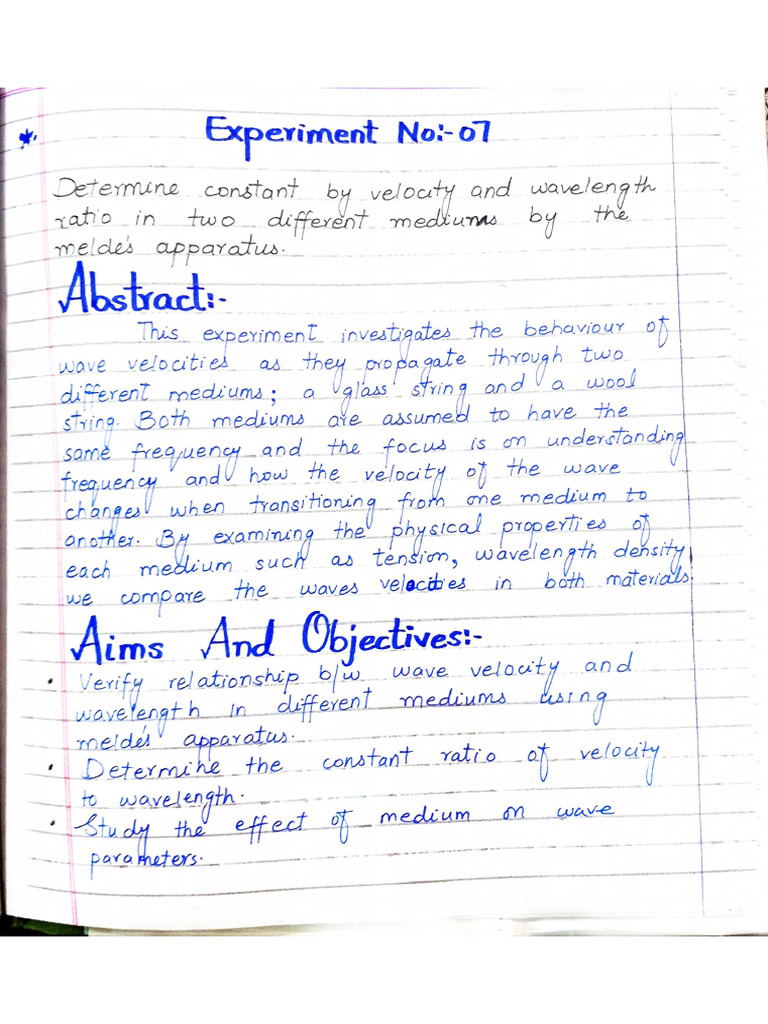 Experiment No:- 07
Determine constant by velocity and wavelength
ratio in two different mediums by the
melde's apparatus.
Abstract:-
This experiment investigates the behaviour of
wave velocities as they propagate through two
different mediums; a glass string and a wool
string. Both mediums are assumed to have the
same frequency and the focus is on understanding
frequency and how the velocity of the wave
changes when transitioning from one medium to
another. By examining the physical properties of
each medium such as tension, wavelength density
we compare the waves velocities in both materials
Aims And Objectives:-
• Verify relationship b/w wave velocity and
wavelength in different mediums using
melde's apparatus.
• Determine the constant ratio of velocity
to wavelength.
• Study the effect of medium on wave
parameters.